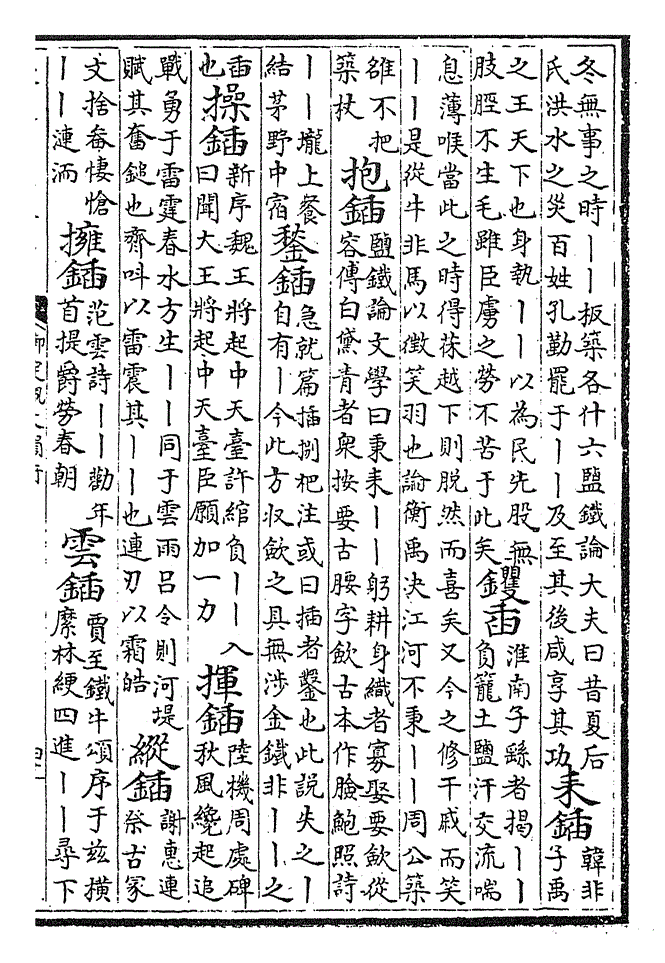 冬無事之時丨丨扳築各什六鹽鐵論大夫曰昔夏后
氏洪水之災百姓孔勤罷于丨丨及至其後咸享其功
耒鍤
韓非
子禹
之王天下也身執丨丨以為民先股無
肢脛不生毛雖臣虜之勞不苦于此矣
钁臿
淮南子繇者揭丨丨
負籠土鹽汗交流喘
息薄喉當此之時得茠越下則脱然而喜矣又今之修干戚而笑
丨丨是從牛非馬以徵笑羽也論衡禹决江河不秉丨丨周公築
雒不把
築杖
抱鍤
鹽鐵論文學曰秉耒丨丨躬耕身織者寡娶要歛從
容傅白黛青者衆按要古腰字歛古本作臉鮑照詩
丨丨壠上餐
結茅野中宿
鍫鍤
急就篇插捌杷注或曰插者鍫也此說失之丨
自有丨今此方収歛之具無涉金鐵非丨丨之
臿
也
操鍤
新序魏王將起中天臺許綰負丨丨入
曰聞大王將起中天臺臣願加一力
揮鍤
陸機周處碑
秋風纔起追
戰勇于雷霆春水方生丨丨同于雲雨呂令則河堤
賦其奮鎚也齊呌以雷震其丨丨也連刃以霜皓
縱鍤
謝惠連
祭古冢
文捨畚悽愴
丨丨漣洏
擁鍤
范雲詩丨丨勸年
首提爵勞春朝
雲鍤
賈至鐵牛頌序于兹横
縻林綆四進丨丨尋下